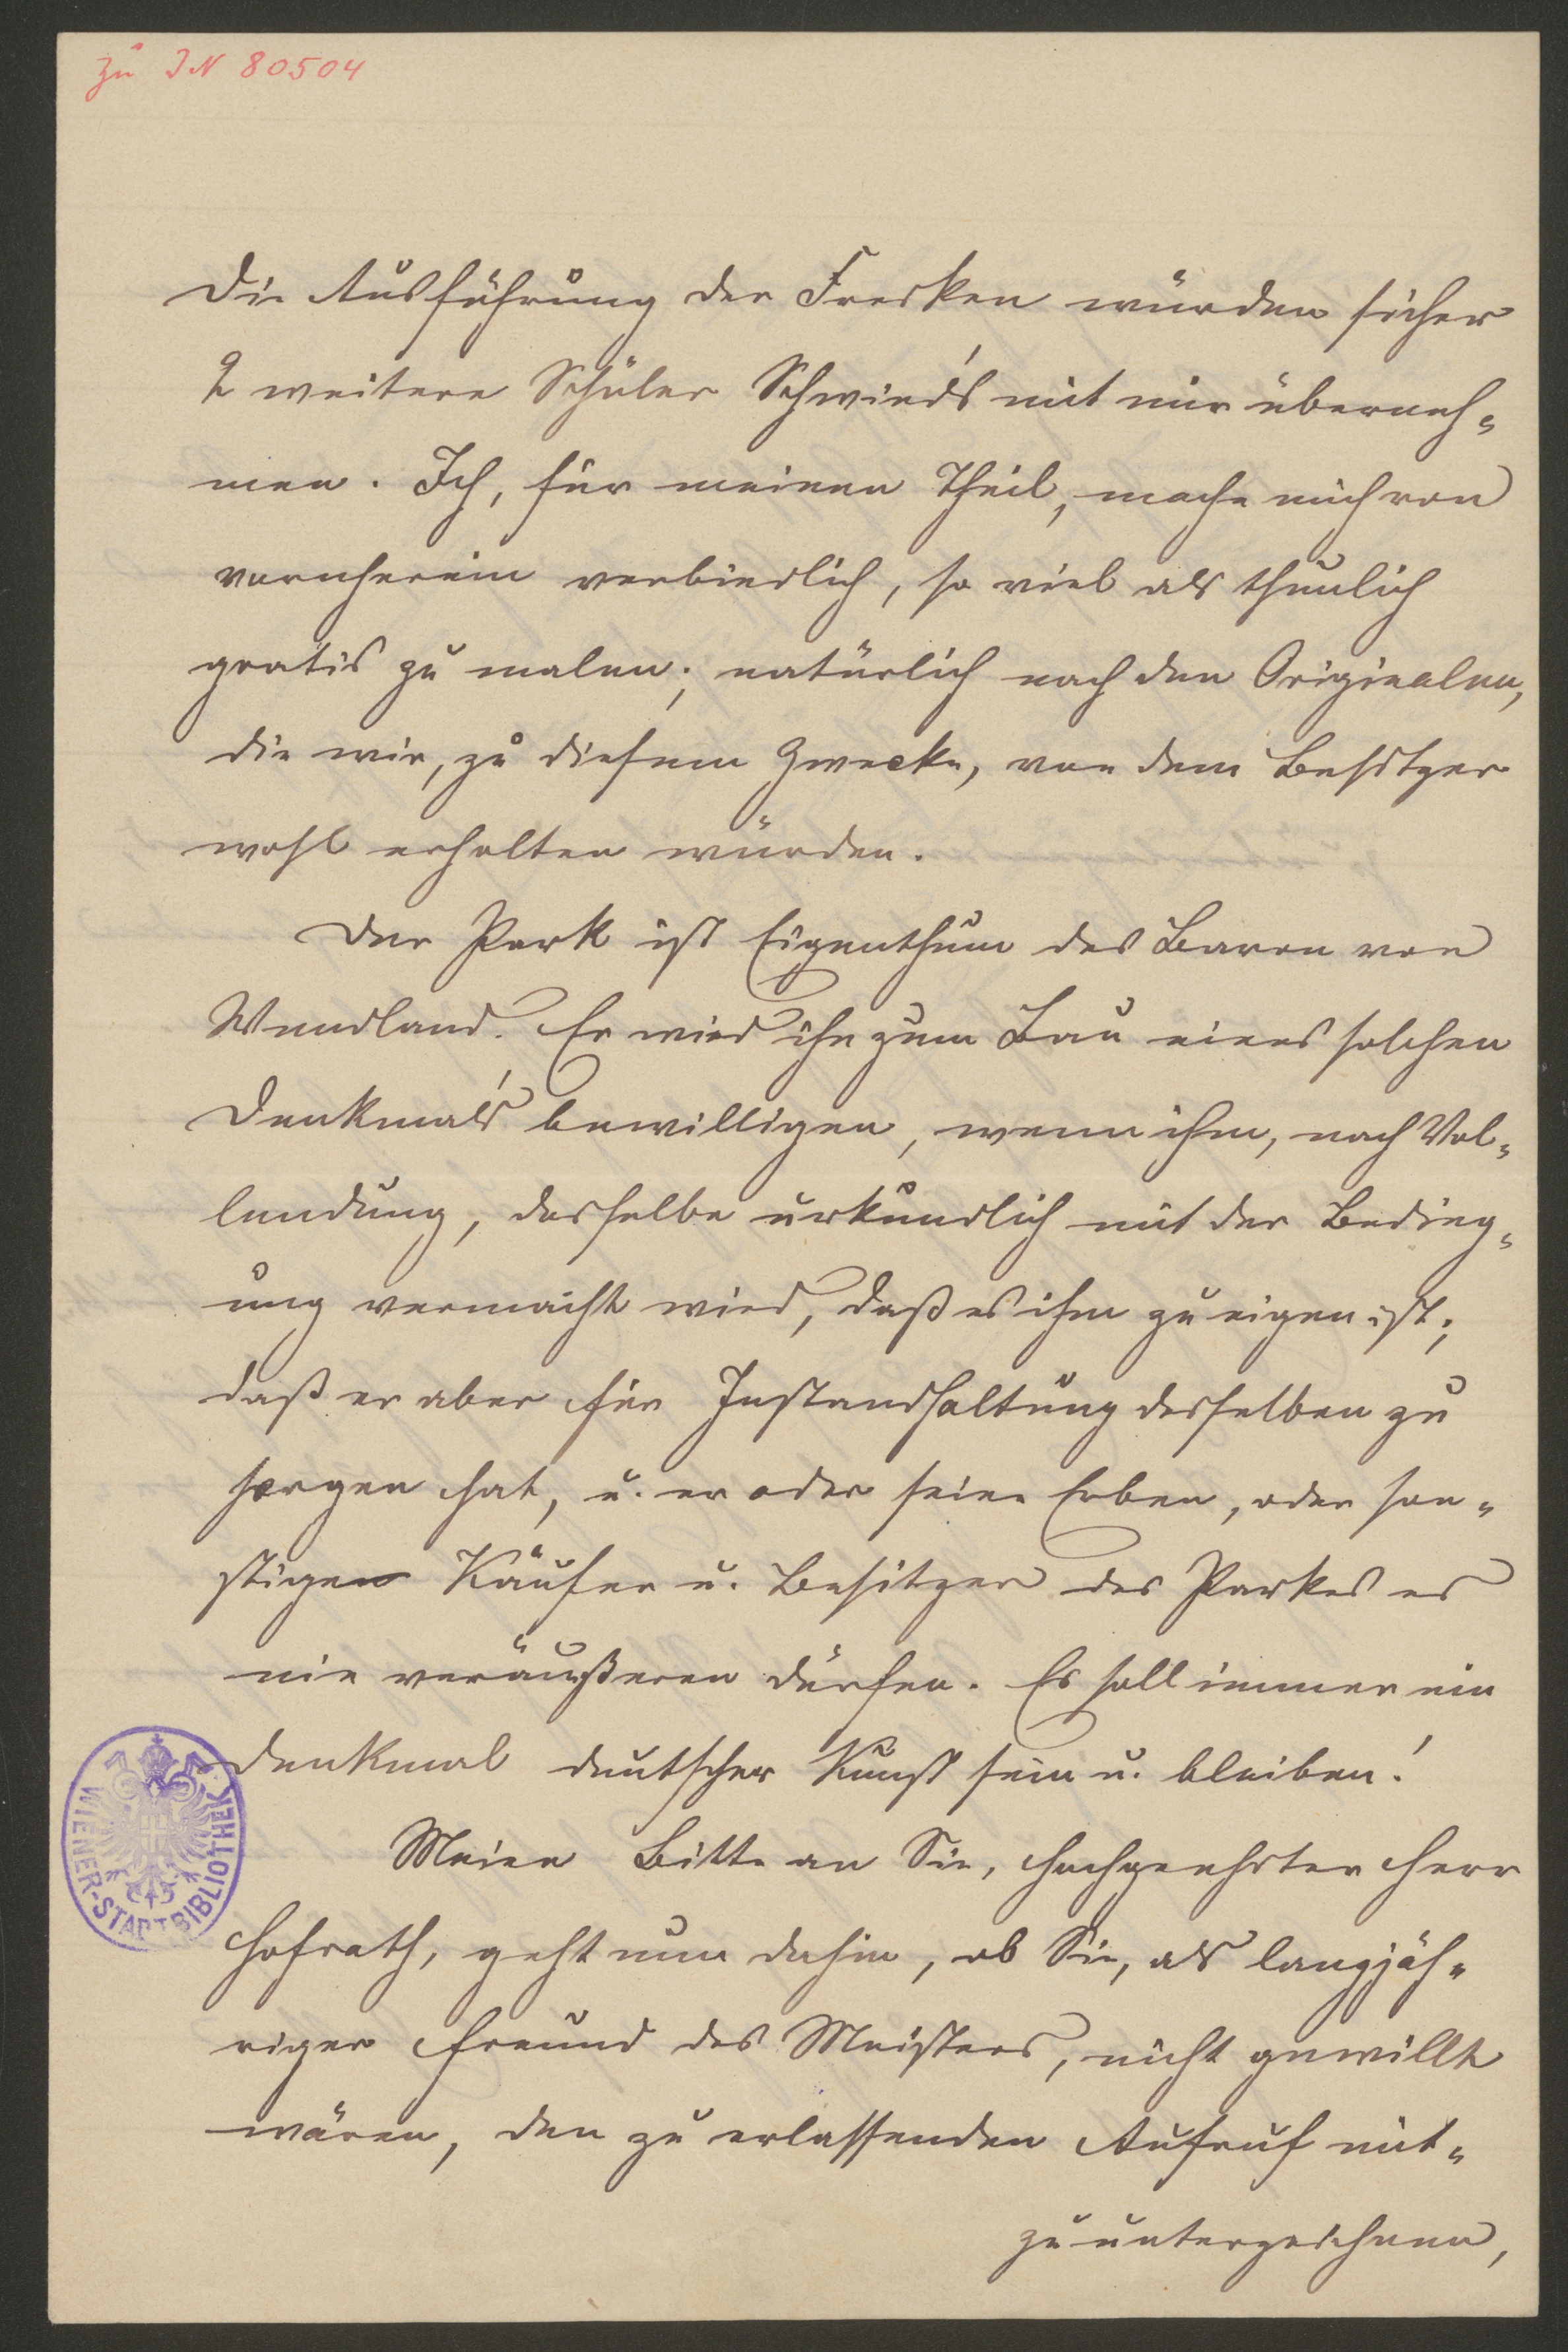 zu IN 80504
Die Ausführung der Fresken würden sicher
2 weitere Schüler Schwind's mit mir überneh-
men. Ich, für meinen Theil, mache mich von
vornherein verbindlich, so viel als thunlich
gratis zu malen; natürlich nach den Originalen,
die wir, zu diesem Zwecke, von dem Besitzer
wohl erhalten würden.
Der Park ist Eigenthum des Baron von
Wendland. Er wird ihn zum Bau eines solchen
Denkmal's bewilligen, wenn ihm, nach Vol-
lendung, dasselbe urkundlich mit der Beding-
ung vermacht wird, daß es ihm zu eigen ist;
daß er aber für Instandhaltung desselben zu
sorgen hat, u. er oder seine Erben, oder son-
stigen Käufer u. Besitzer des Parkes es
nie veräußeren dürfen. Es soll immer ein
Denkmal deutscher Kunst sein u. bleiben!
WIENER-STADTBIBLIOTHEK
Meine Bitte an Sie, hochgeehrter Herr
Hofrath, geht nun dahin, ob Sie, als langjäh-
riger Freund des Meisters, nicht gewillt
wären, den zu erlassenden Aufruf mit-
zuunterzeichnen,